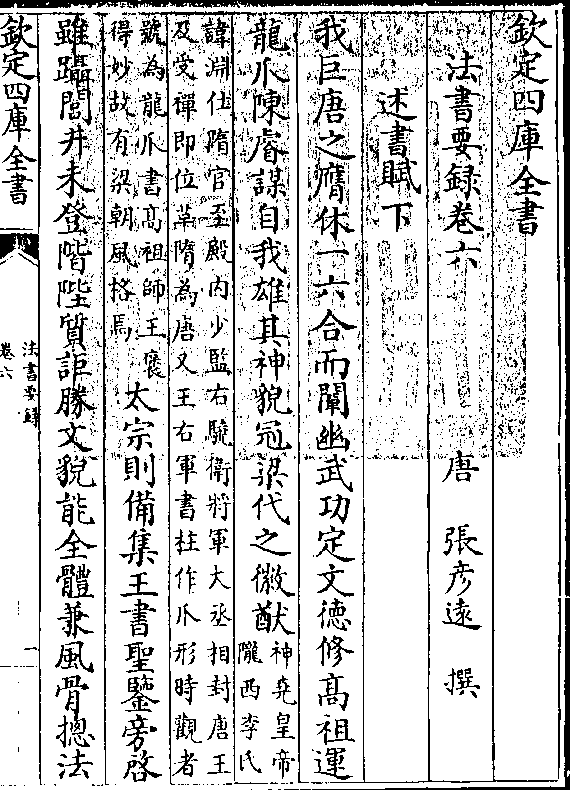 欽定四庫全書
法書要錄卷六
唐 張彥遠 撰
述書賦下
我巨唐之膺休一六合而闡幽武功定文德修高祖運
龍爪陳睿謀自我雄其神貌冠梁代之徽猷神堯皇帝隴西李氏
諱淵仕隋官至殿內少監右驍衛將軍大丞相封唐王
及受禪即位革隋為唐又王右軍書柱作爪形時觀者
號為龍爪書高祖師王褒
得妙故有梁朝風格焉
太宗則備集王書聖鑒旁啓
雖躡閭井未登階陛質詎勝文貌能全體兼風骨摠法
欽定四庫全書
法書要錄
卷六
一